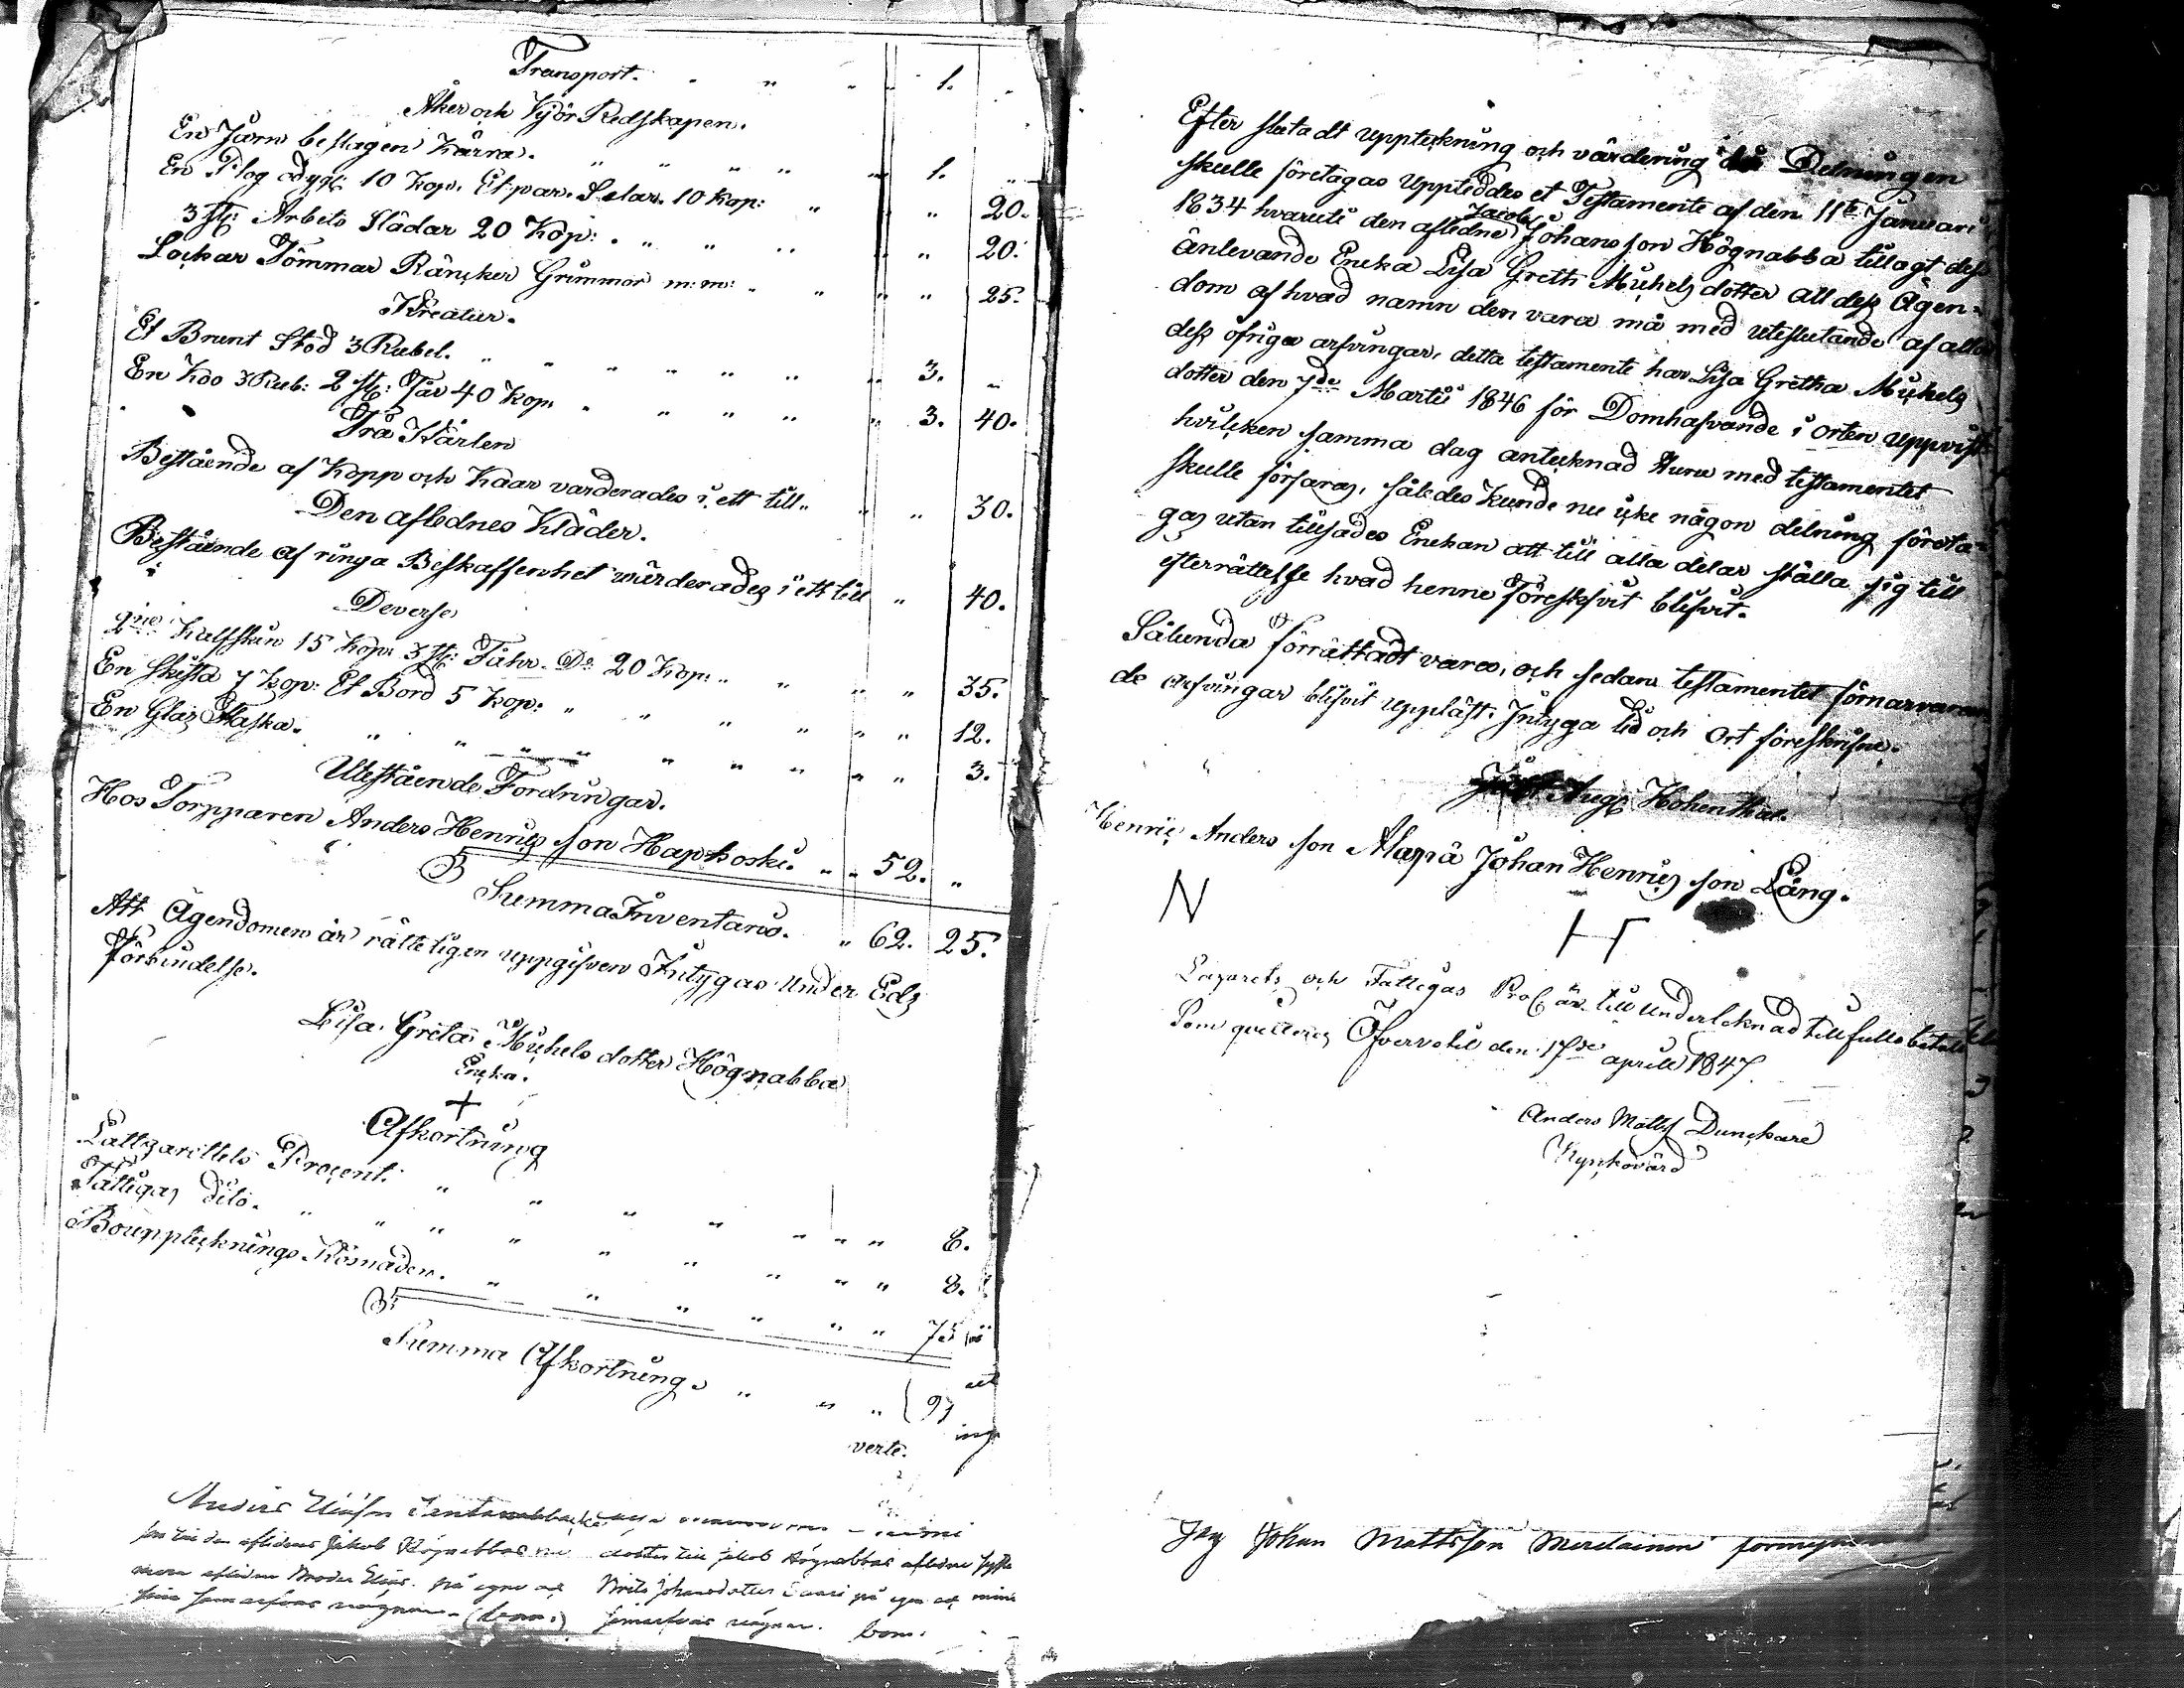 Transport. " " " " 1. "
Åker och Kjör Redskapen.
En Järn beslagen Kärra. " " " " " 1. "
En Plog 10 Kop. Et par Selar 10 Kop: " " " 20.
3 st: Arbets Slädar 20 Kop: . " " " " " 20.
Lockar Tömmar Räncker Grimmor m:m: " " " " 25.
Kreatur.
Et Brunt Stod 3 Rubel. " " " " " " 3. "
En Koo 3 Rub: 2 st: Får 40 Kop. " " " " " 3. 40.
Trä Kärlen
Bestående af Kopp och Kaar varderades i ett till " " " 30.
Den aflednes Kläder.
Bestående af ringa Beskaffenhet värderades i ett till " 40.
Deverse
2ne Kalfskin 15 Kop: 3 st: Fåhr. Do 20 Kop. " " " " 35.
En Kista 7 Kop: Et Bord 5 Kop: " " " " " " 12.
En Glas Flaska. " " " " " " " " " 3.
Utestående Fordringar.
Hos Torpparen Anders Henrics son Haphoski. " " 52. "
Summa Inventario. " 62. 25.
Att Ägendomen är rätteligen uppgifven Intygas under Eds
förbindelse.
Lisa Greta Michels dotter Högnabba
Encka.
+
Afkortning
Lattzarettets Procent. " " " " " " " 8.
Fattigas dito. " " " " " " " " " 8.
Boupptecknings Kosnaden. " " " " " " 75
Summa Afkortning. " " " 91
verte.
Anders Eliasson
den aflidnes Jakob Högnabbas dotter till Jakob Högnabbas aflidne
aflidne Broder Elias. på egne och Brita Johansdotter på egen och mina
vägnar. (bom.) vägnar. bom.
Efter slutadt uppteckning och värdering då Delningen
skulle företagas Uppteddes et Testamente af den 11te Januari
1834 hvaruti den afledne Jacob Johans son Högnabba tillagt dess
änlevande Encka Lisa Greth Michels dotter all dess Ägen-
dom af hvad namn den vara må med uteslutande af alla
dess öfriga arfvingar, detta testamente har Lisa Gretha Michels
dotter den 7de Martii 1846 för Domhafvande i orten uppvist
hvilcken samma dag antecknad huru med testamentet
skulle förfaras, således kunde nu icke någon delning företa-
gas utan tillsades Enckan att till alla delar ställa sig till
efterrättelse hvad henne föreskrfvit blifvit.
Sålunda förrättadt vara, och sedan testamentet för närvaran
de arfvingar blifvit uppläst. Intyga tid och Ort föreskrifne.
Aug: Hohenthal.
Henric Anders son Alapä Johan Henrics son Lång.
N H
Lazarets och Fattigas Proc är till undertecknad tillfullo betalt
Som qvitteras Öfvervetil den 17de april 1847
Anders Matts Dunckare
Kyrckovärd
Jag Johan Mattsson Merilainen